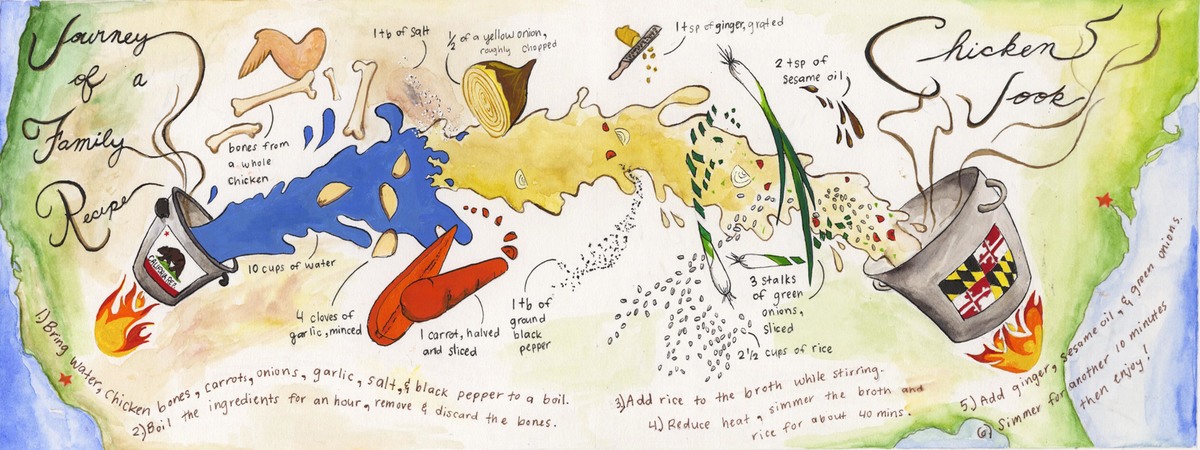 Journey
of a
Family
Recipe
Chicken
Jook
bones from
a whole
chicken
1 tb of salt
1/2 of a yellow onion,
roughly chopped
1 tsp of ginger, grated
2 tsp of
sesame oil
10 cups of water
4 cloves of
garlic, minced
1 carrot, halved
and sliced
1 tb of
ground
black
pepper
3 stalks
of green
onions,
sliced
2 1/2 cups of rice
CALIFORNIA REPUBLIC
1) Bring water, chicken bones, carrots, onions, garlic, salt, & black pepper to a boil.
2) Boil the ingredients for an hour, remove & discard the bones.
3) Add rice to the broth while stirring.
4) Reduce heat, simmer the broth and
rice for about 40 mins.
5) Add ginger, sesame oil, & green onions.
6) Simmer for another 10 minutes
then enjoy!